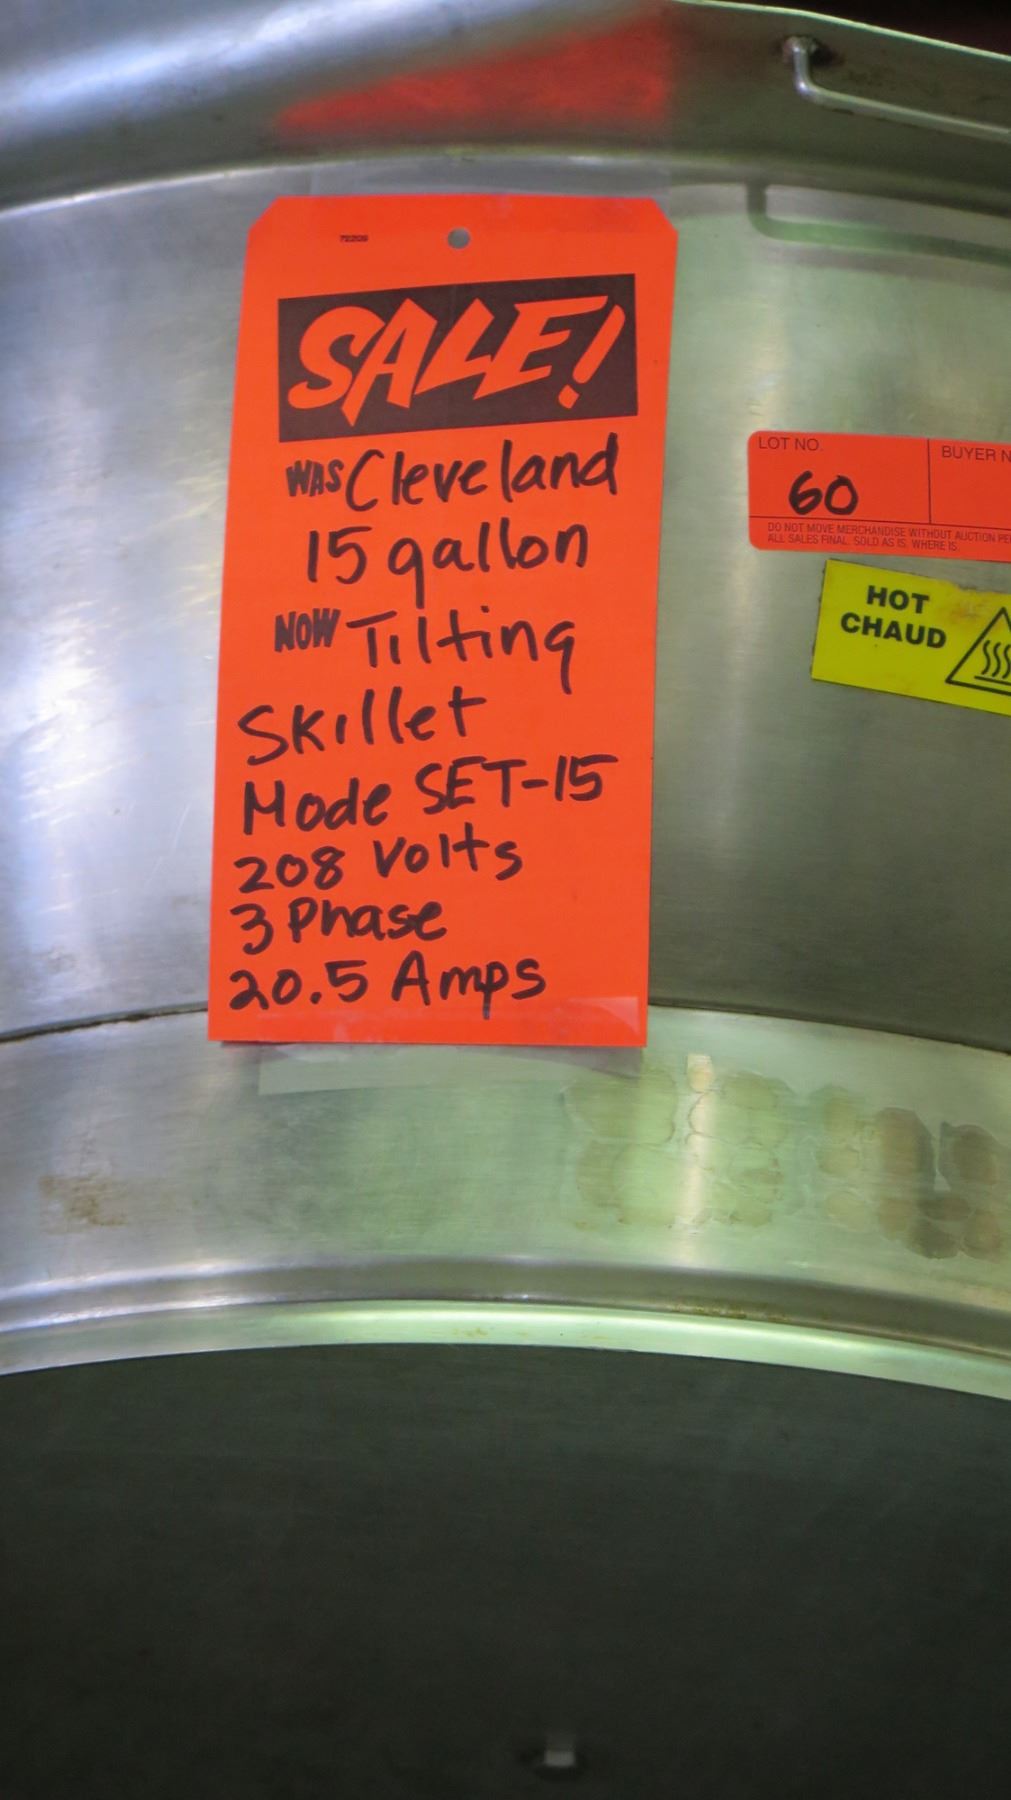 72209
SALE!
WAS Cleveland
15 gallon
NOW Tilting
Skillet
Mode SET-15
208 Volts
3 Phase
20.5 Amps
LOT NO.
BUYER N
60
DO NOT MOVE MERCHANDISE WITHOUT AUCTION PE
ALL SALES FINAL. SOLD AS IS. WHERE IS.
HOT
CHAUD